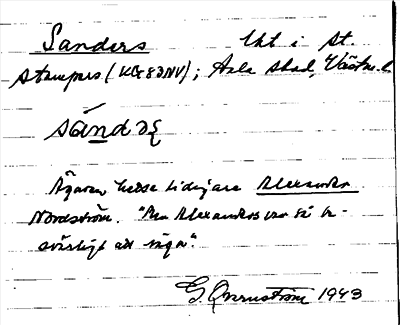 Sanders Ukt i St.
Stampers (KG 83NV); Sala stad, Västm. l.
sandəʂ
Ägaren hette tidigare Alexander
Nordström. "Men Alexanders var så be-
svärligt att säga".
G. Qvarnström 1943